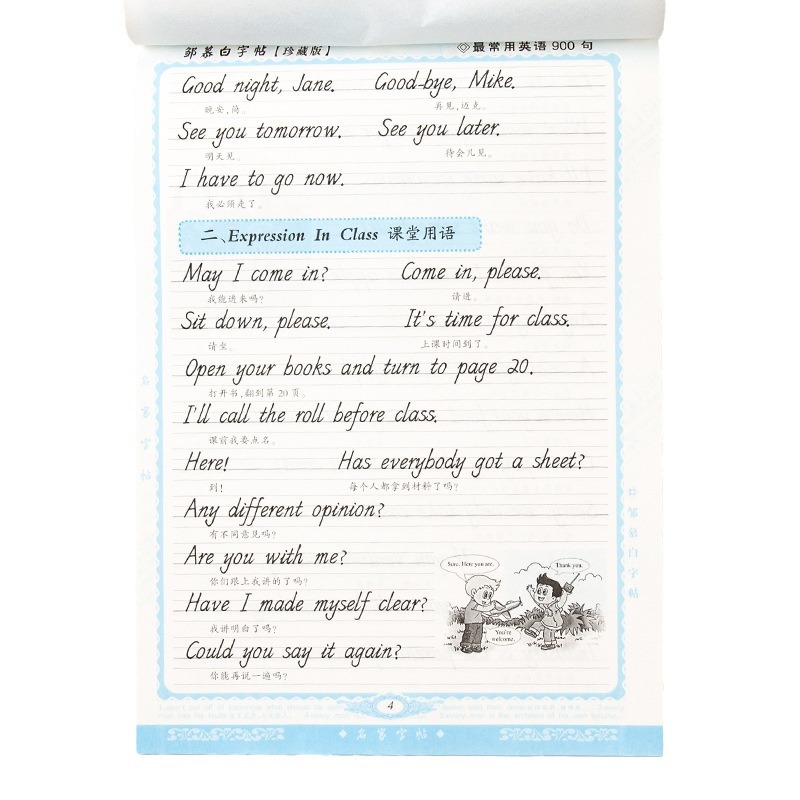 邹慕白字帖【珍藏版】 ◇最常用英语900句
Good night, Jane. Good-bye, Mike.
晚安,简。 再见,迈克。
See you tomorrow. See you later.
明天见。 待会儿见。
I have to go now.
我必须走了。
二、Expression In Class 课堂用语
May I come in? Come in, please.
我能进来吗? 请进。
Sit down, please. It's time for class.
请坐。 上课时间到了。
Open your books and turn to page 20.
打开书,翻到第20页。
I'll call the roll before class.
课前我要点名。
Here! Has everybody got a sheet?
到! 每个人都拿到材料了吗?
Any different opinion?
有不同意见吗?
Are you with me?
你们跟上我讲的了吗?
Have I made myself clear?
我讲明白了吗?
Could you say it again?
你能再说一遍吗?
Sure. Here you are.
Thank you.
You're welcome.
名家字帖
邹慕白字帖
4
名家字帖